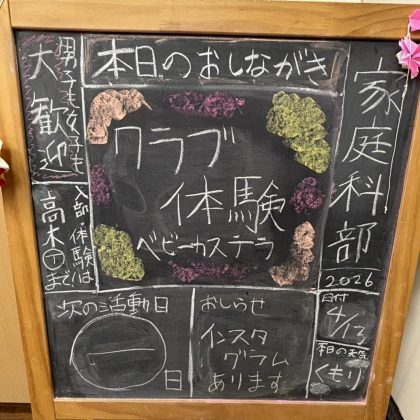 本日のおしながき
家庭科部
2026
日付
4/13
本日の天気
くもり
男子も女子も
大歓迎
入部・体験は
高木Ⓣまで
クラブ
体験
ベビーカステラ
次の活動日
一
日
おしらせ
インスタ
グラム
あります